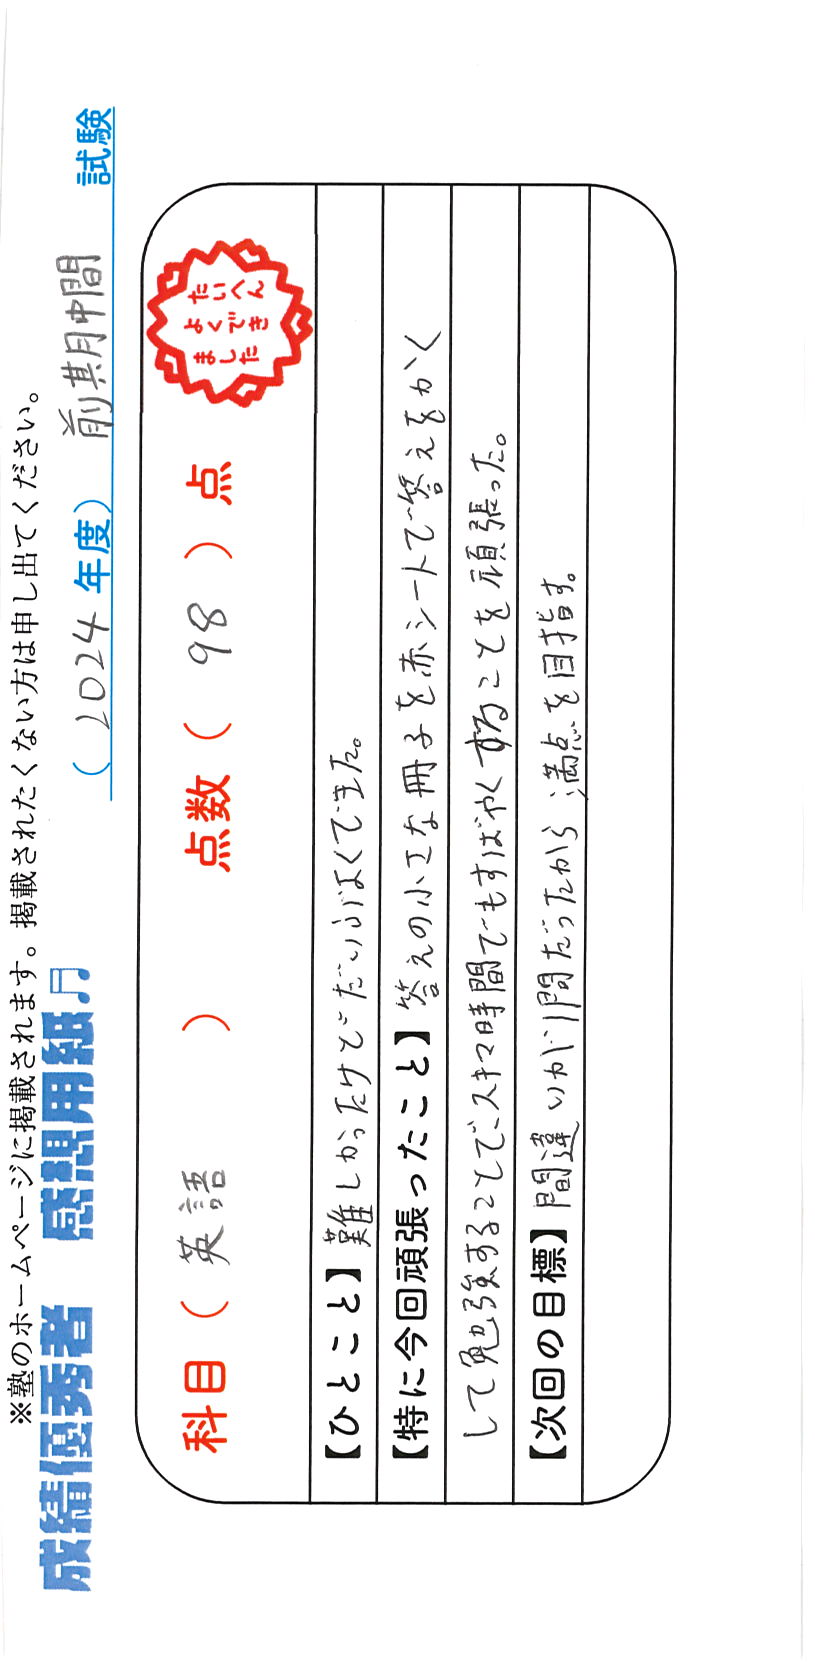 ※塾のホームページに掲載されます。掲載されたくない方は申し出てください。
成績優秀者 感想用紙♫ (2024年度) 前期中間 試験
科目( 英語 ) 点数( 98 )点
たいへん
よくでき
ました
【ひとこと】難しかったけどだいぶよくできた。
【特に今回頑張ったこと】答えの小さな冊子を赤シートで答えをかく
して勉強することで、スキマ時間でもすばやくすることを頑張った。
【次回の目標】間違いが1問だったから満点を目指す。